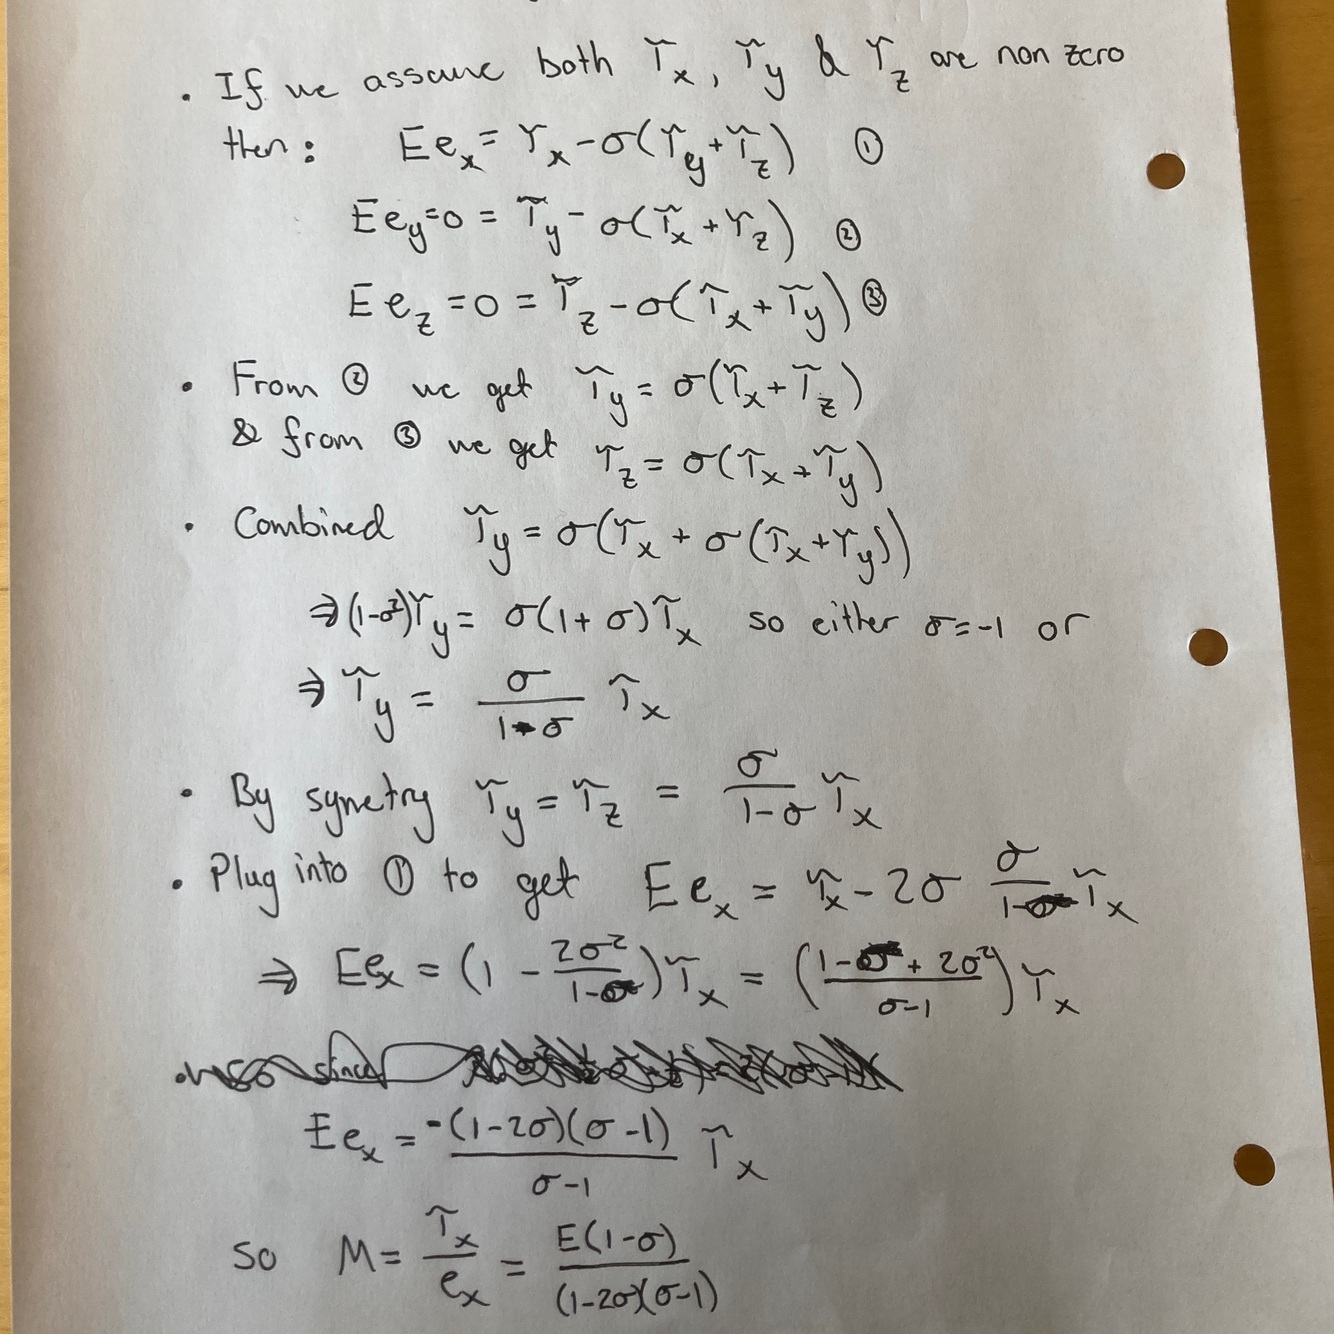 • If we assume both T_x, T_y & T_z are non zero
then: Ee_x = T_x - σ(T_y + T_z) ①
Ee_y = 0 = T_y - σ(T_x + T_z) ②
Ee_z = 0 = T_z - σ(T_x + T_y) ③
• From ② we get T_y = σ(T_x + T_z)
& from ③ we get T_z = σ(T_x + T_y)
• Combined T_y = σ(T_x + σ(T_x + T_y))
⇒ (1-σ²)T_y = σ(1+σ)T_x so either σ=-1 or
⇒ T_y = σ/(1-σ) T_x
• By symetry T_y = T_z = σ/(1-σ) T_x
• Plug into ① to get Ee_x = T_x - 2σ σ/(1-σ) T_x
⇒ Ee_x = (1 - 2σ²/(1-σ)) T_x = ((1-σ+2σ²)/(σ-1)) T_x
Ee_x = -(1-2σ)(σ-1)/(σ-1) T_x
so M = T_x/e_x = E(1-σ)/((1-2σ)(σ-1))